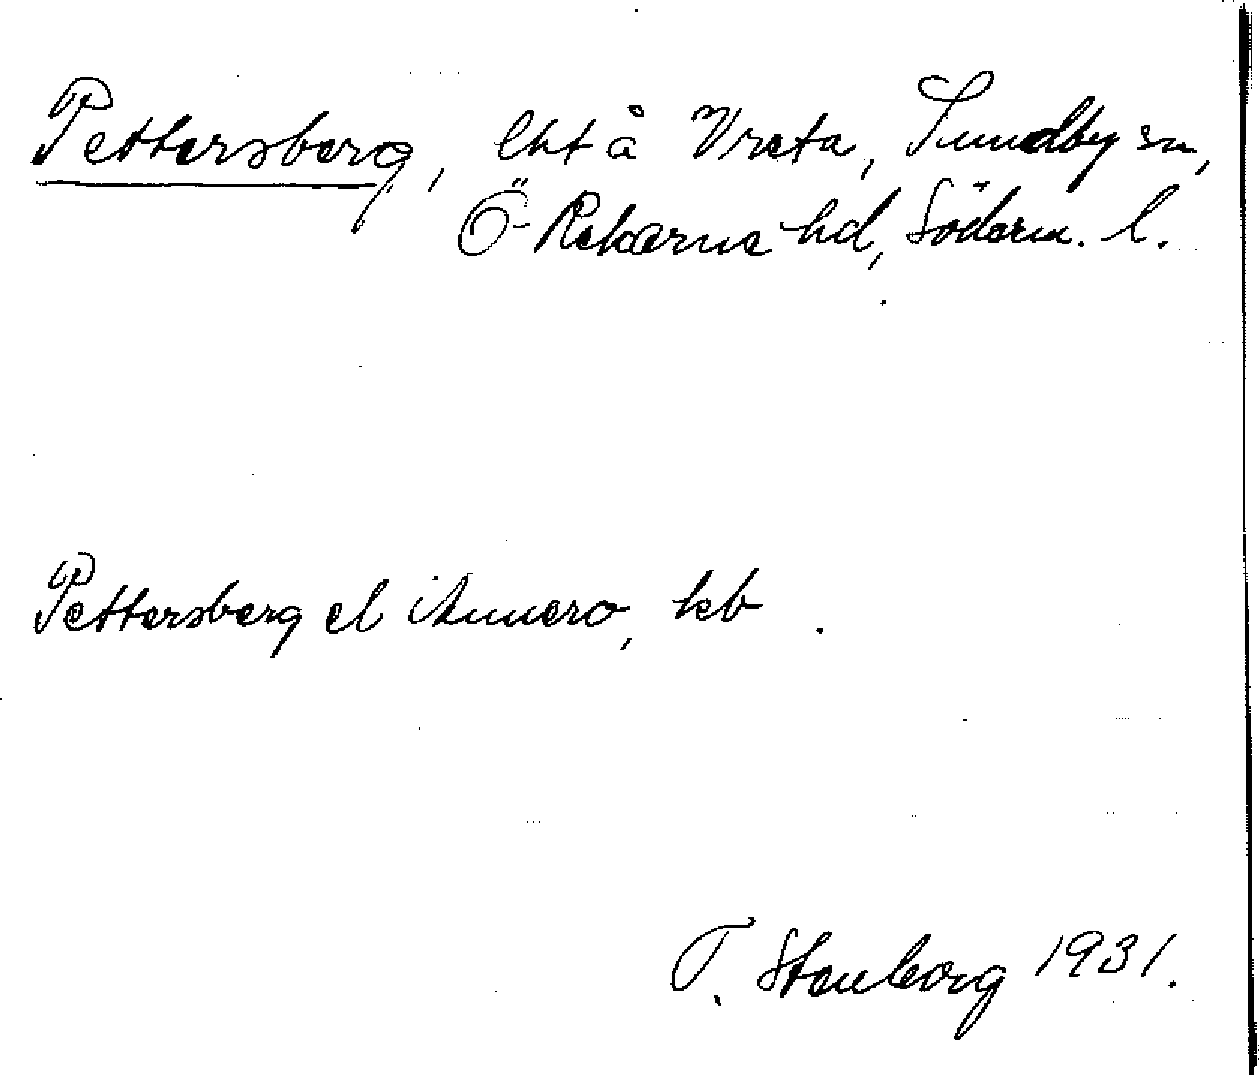 Pettersberg, lht å Vreta, Sundby sn,
Ö-Rekarne hd, Söderm. l.
Pettersberg el. Annero, kb.
T. Stenborg 1931.